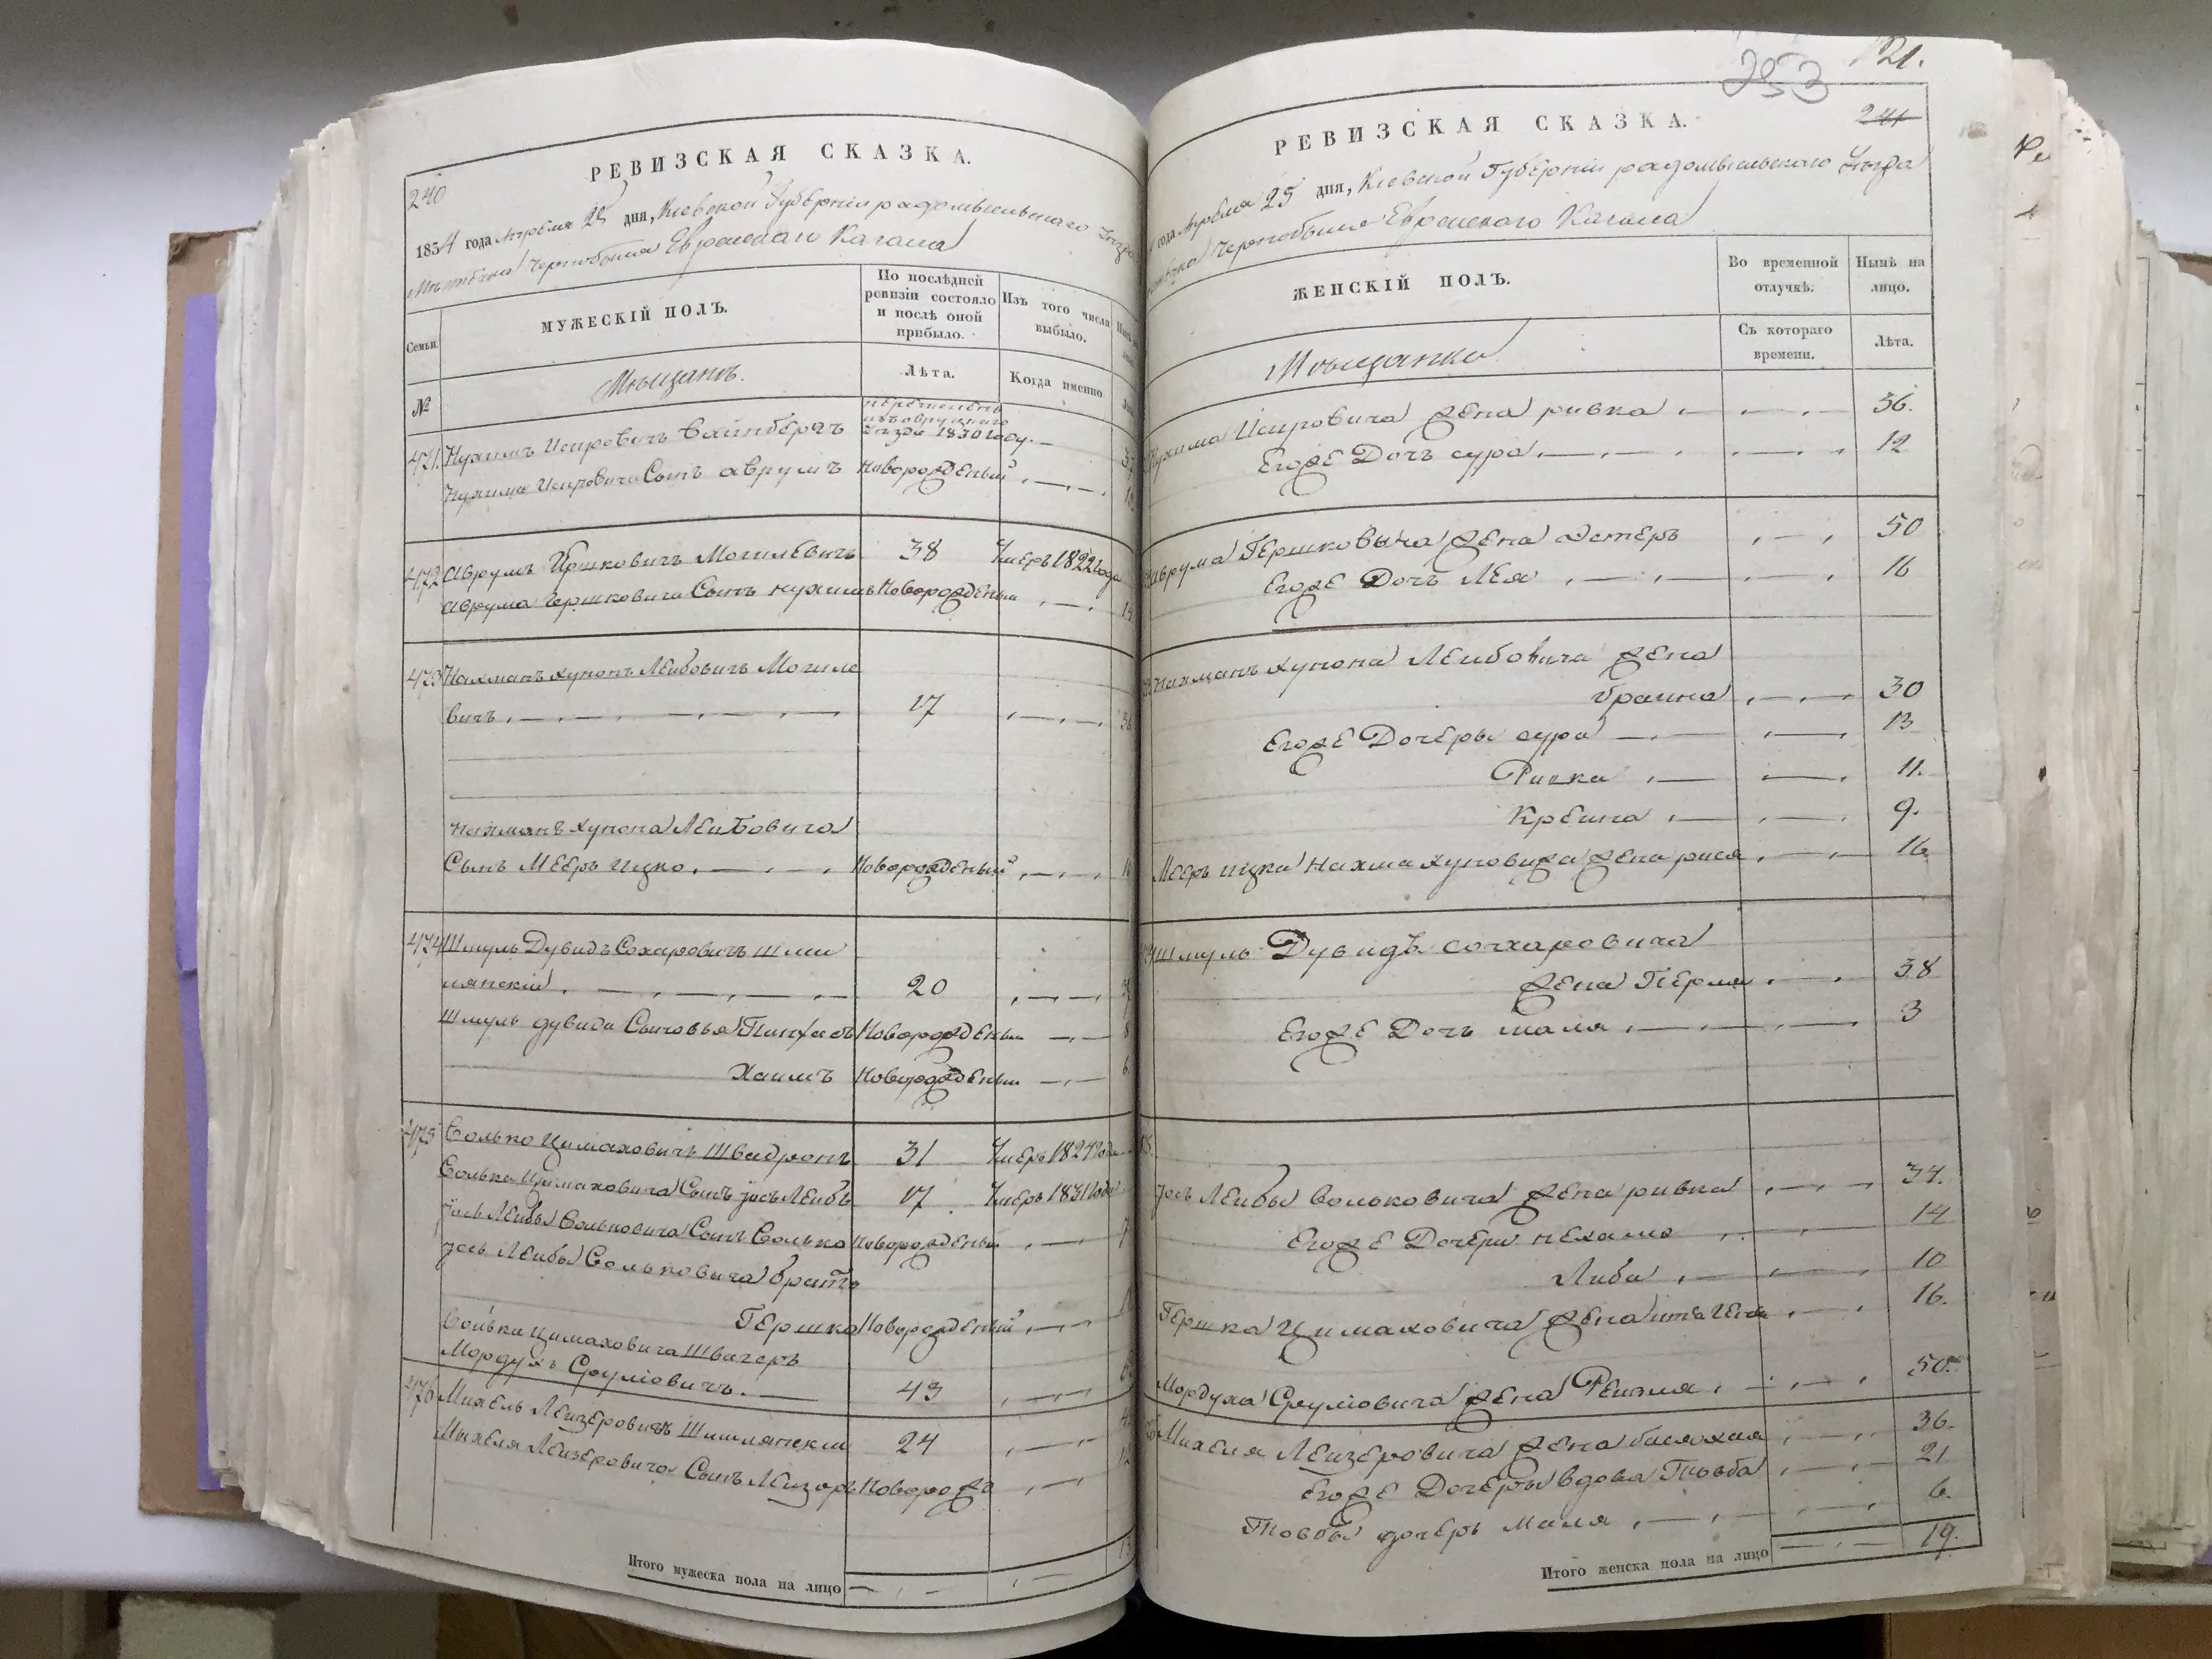 240
РЕВИЗСКАЯ СКАЗКА.
1834 года Апреля 25 дня, Киевской Губернии радомысльского Уезда
Местечка Чернобыля Еврейского Кагала
Семьи
МУЖЕСКІЙ ПОЛЪ.
По послѣдней ревизіи состояло и послѣ оной прибыло.
Изъ того числа выбыло.
№
Мещанъ.
Лѣта.
Когда именно
471 Нухимъ Исировичъ Вайнберъ
перечисленъ
уезда 1830 году.
Нухима Исировича Сынъ аврумъ Новорожденый
472 Аврумъ Гершковичъ Могилевичъ 38 Умеръ 1822 года
Аврума Гершковича Сынъ нухимъ Новорожденый
473 Нахманъ хунонъ Леибовичъ Могиле
вичъ 17
Нахманъ хунона Леибовича
Сынъ Мееръ ицко Новорожденый 16
474 Шмуль Дувидъ Сохаровичъ шми
лянский 20
Шмуль дувида Сыновья Пинхасъ Новорожденый 8
Хаимъ Новорожденый 6
475 Волько Цимаховичъ Швадронъ 31 Умеръ 1824 года
Волька Цимаховича Сынъ іось Леибъ 17 Умеръ 1831 года
іось Леибы Вольковича Сынъ Волько Новорожденый 7
іось Леибы Вольковича братъ
Гершко Новорожденый
Волька Цимаховича Швагеръ
Мордухъ Сруліовичъ 43
476 Михель Леизеровичъ Шмилянский 24
Михеля Леизеровича Сынъ Леизоръ Новорожд
Итого мужеска пола на лицо
253
121.
241
РЕВИЗСКАЯ СКАЗКА.
года Апреля 25 дня, Киевской Губернии радомысльского Уезда
Чернобыля Еврейского Кагала
ЖЕНСКІЙ ПОЛЪ.
Во временной отлучкѣ.
Нынѣ на лицо.
Мещанки
Съ котораго времени.
Лѣта.
Нухима Исировича жена ривка 36.
Егоже Дочь сура 12
Аврума Гершковича жена Эстеръ 50
Егоже Дочь Лея 16
Нахманъ хунона Леибовича жена
браина 30
Егоже Дочеры сура 13
Ривка 11.
Креина 9.
Мееръ ицка Нахма хуновича жена рися 16
Шмуль Дувидъ сохаровича
жена Перля 38
Егоже Дочь маля 3
іось Леибы Вольковича жена ривка 34.
Егоже Дочери нехама 14
Либа 10
Гершка Цимаховича жена 16.
Мордуха Сруліовича жена Реизля 50.
Михеля Леизеровича жена басяхая 36.
Егоже Дочеры вдова Товба 21
Товбы дочерь Маля 6.
Итого женска пола на лицо 19.